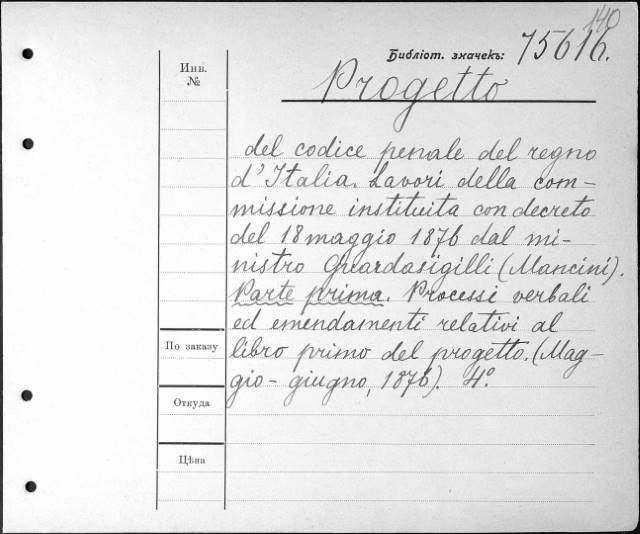 140
Библіот. значекъ: 75616.
Инв.
№
Progetto
del codice penale del regno
d'Italia. Lavori della com-
missione instituita con decreto
del 18 maggio 1876 dal mi-
nistro Guardasigilli (Mancini).
Parte prima. Processi verbali
ed emendamenti relativi al
По заказу
libro primo del progetto. (Mag-
gio-giugno, 1876). 4º.
Откуда
Цѣна